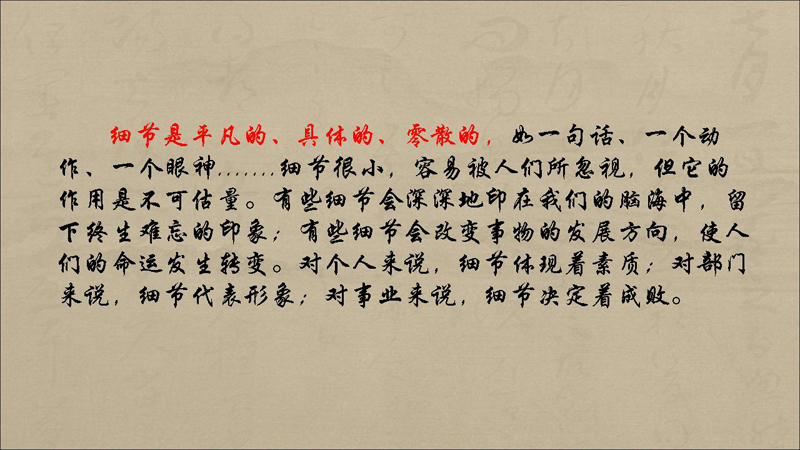 细节是平凡的、具体的、零散的，如一句话、一个动
作、一个眼神.......细节很小，容易被人们所忽视，但它的
作用是不可估量。有些细节会深深地印在我们的脑海中，留
下终生难忘的印象；有些细节会改变事物的发展方向，使人
们的命运发生转变。对个人来说，细节体现着素质；对部门
来说，细节代表形象；对事业来说，细节决定着成败。